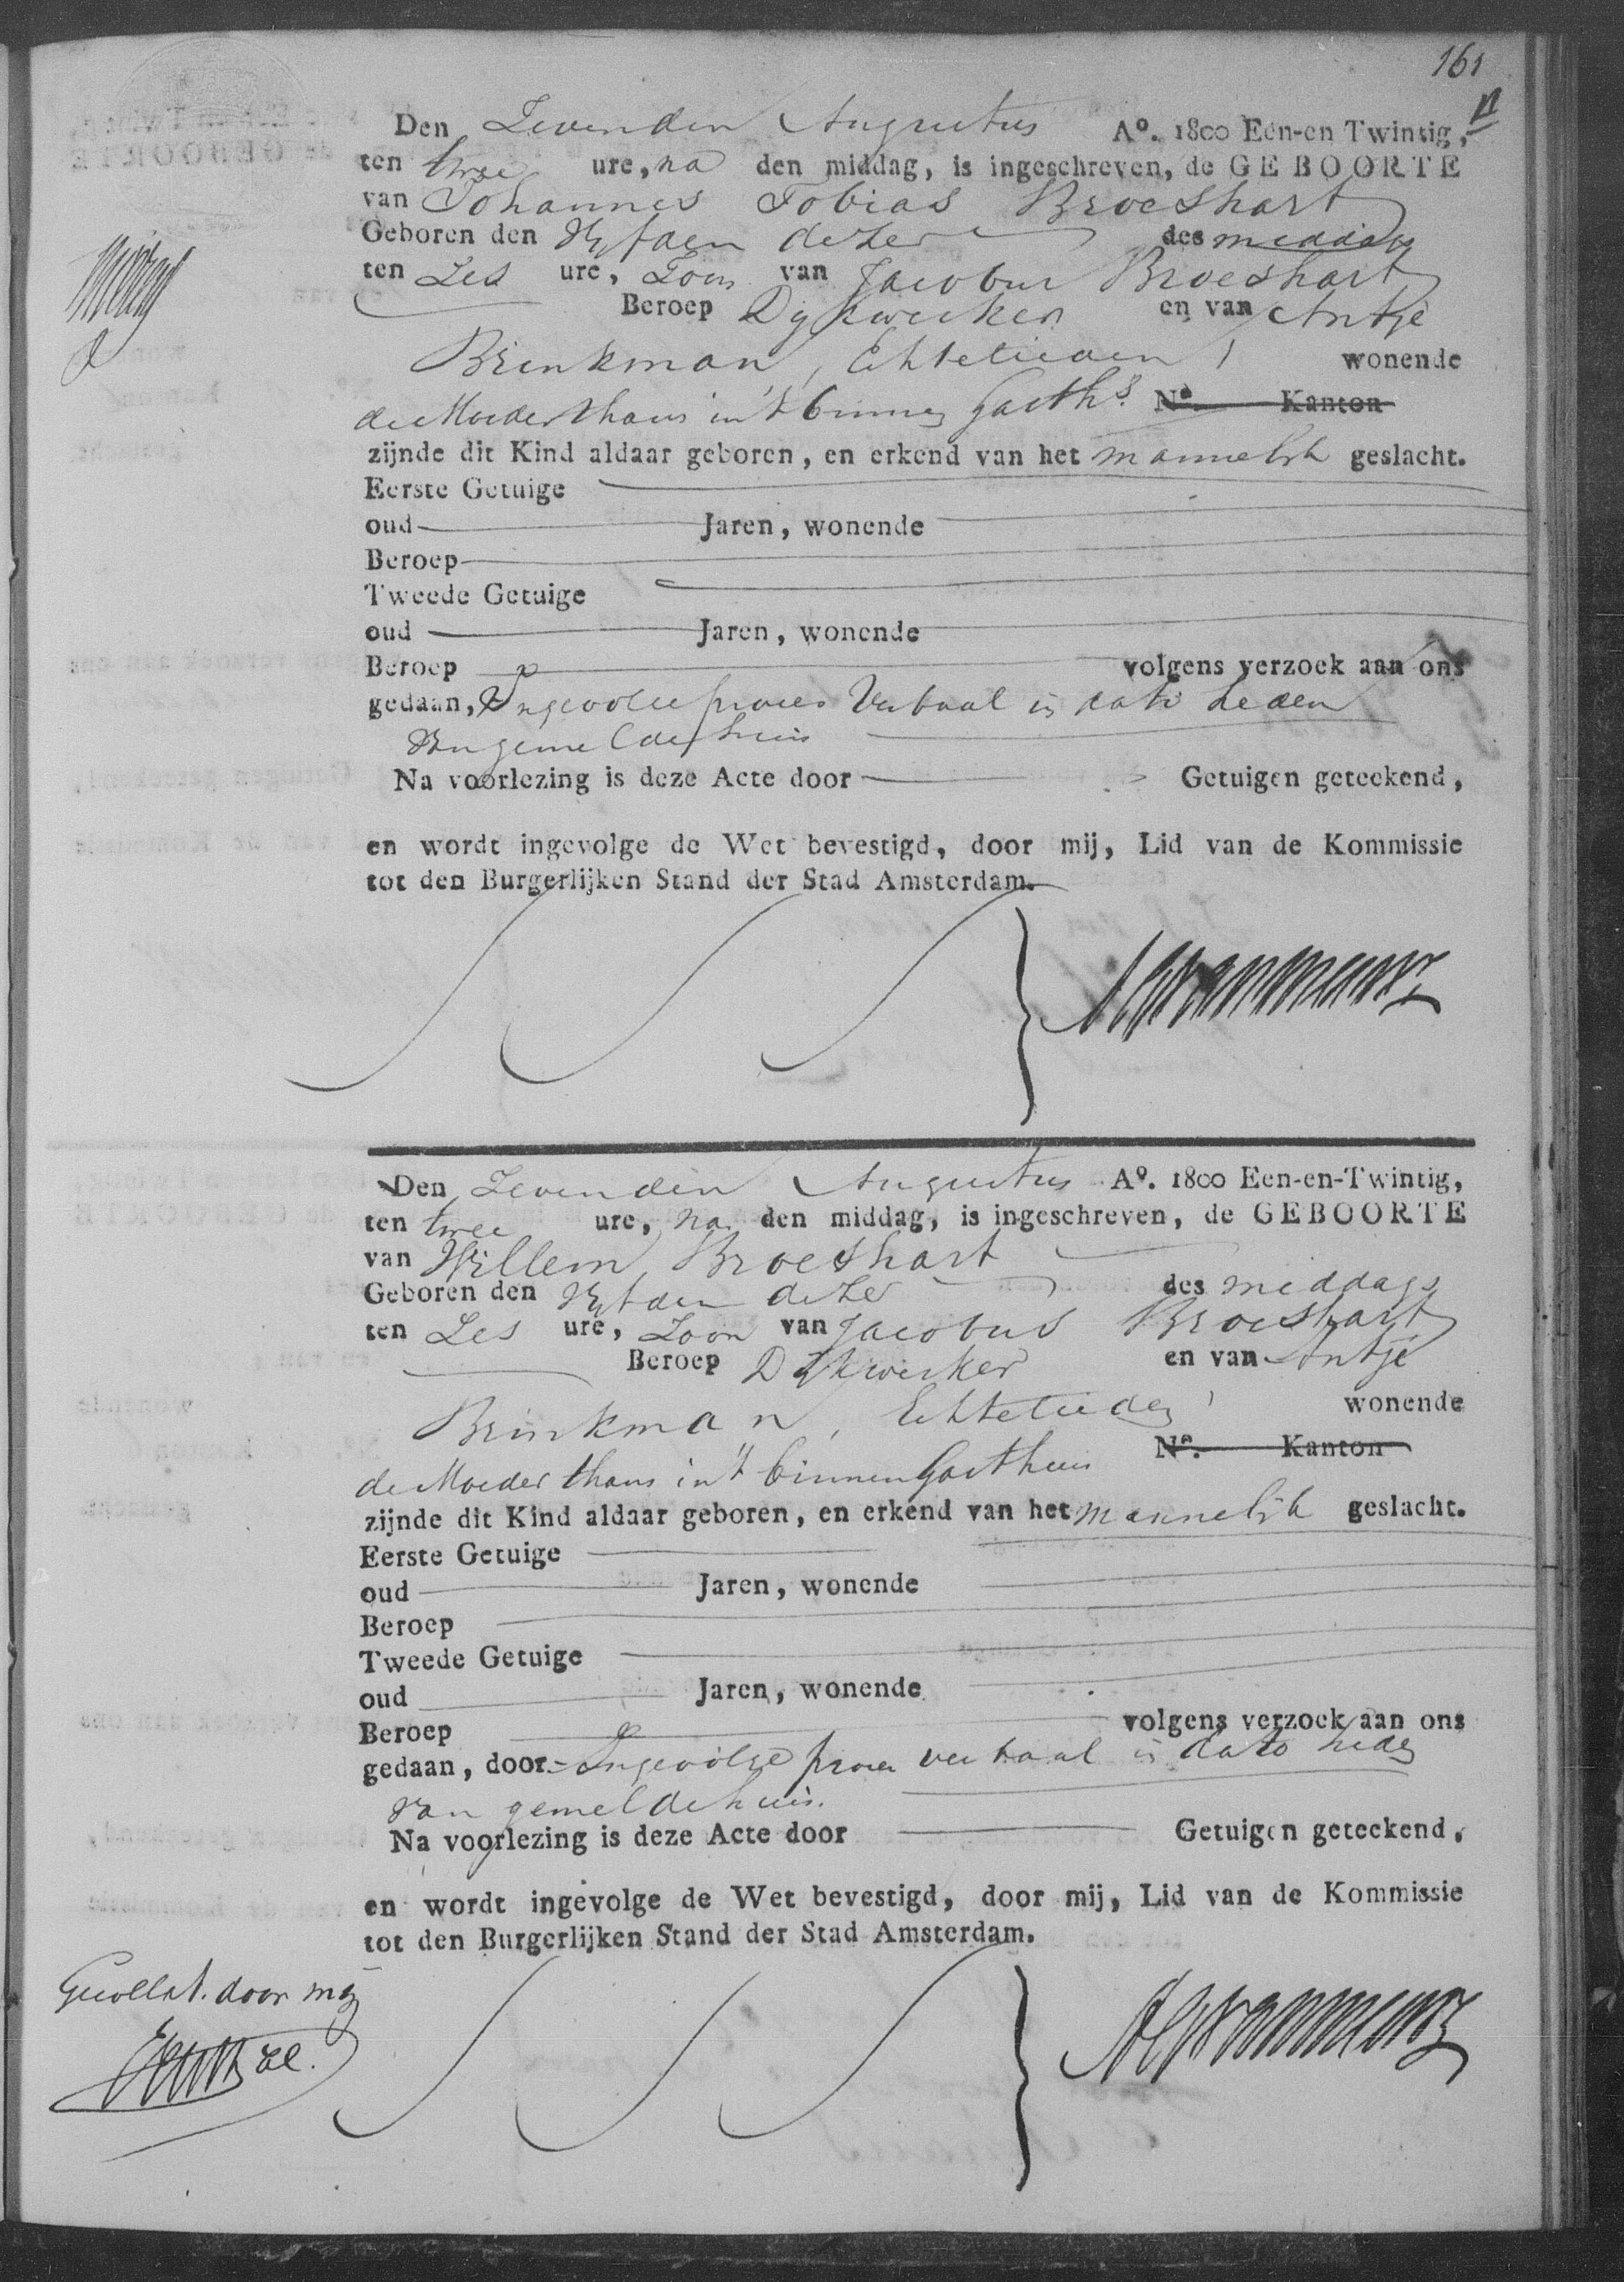 161
Den Zevenden Augustus Aº. 1800 Een-en Twintig,
ten twee ure, na den middag, is ingeschreven, de GEBOORTE
van Johannes Tobias Broeshart
Geboren den Vyfden dezer des middags
ten Zes ure, Zoon van Jacobus Broeshart
Beroep Dykwerker en van Antje
Brinkman, Echtelieden, wonende
de Moeder thans in't binnen Gasths. Nº. Kanton
zijnde dit Kind aldaar geboren, en erkend van het mannelijk geslacht.
Eerste Getuige
oud Jaren, wonende
Beroep
Tweede Getuige
oud Jaren, wonende
Beroep volgens verzoek aan ons
gedaan, Ingevolge proces Verbaal in dato heden
van gemelde huis
Na voorlezing is deze Acte door Getuigen geteekend,
en wordt ingevolge de Wet bevestigd, door mij, Lid van de Kommissie
tot den Burgerlijken Stand der Stad Amsterdam.
Den Zevenden Augustus Aº. 1800 Een-en-Twintig,
ten twee ure, na den middag, is ingeschreven, de GEBOORTE
van Willem Broeshart
Geboren den Vyfden dezer des middags
ten Zes ure, Zoon van Jacobus Broeshart
Beroep Dykwerker en van Antje
Brinkman, Echtelieden, wonende
de Moeder thans in't binnen Gasthuis Nº. Kanton
zijnde dit Kind aldaar geboren, en erkend van het mannelijk geslacht.
Eerste Getuige
oud Jaren, wonende
Beroep
Tweede Getuige
oud Jaren, wonende
Beroep volgens verzoek aan ons
gedaan, door Ingevolge proces verbaal in dato heden
van gemelde huis.
Na voorlezing is deze Acte door Getuigen geteekend,
en wordt ingevolge de Wet bevestigd, door mij, Lid van de Kommissie
tot den Burgerlijken Stand der Stad Amsterdam.
Gecollat. door mij